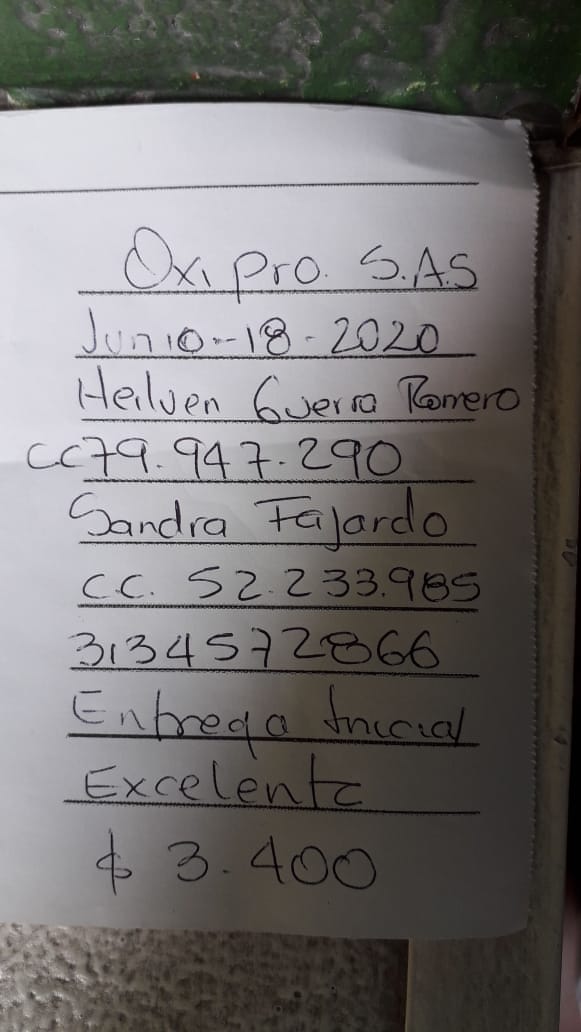 Oxi pro. S.A.S
Junio-18-2020
Heilven Guerra Romero
CC79.947.290
Sandra Fajardo
C.C. 52.233.985
3134572866
Entrega Inicial
Excelente
$ 3.400